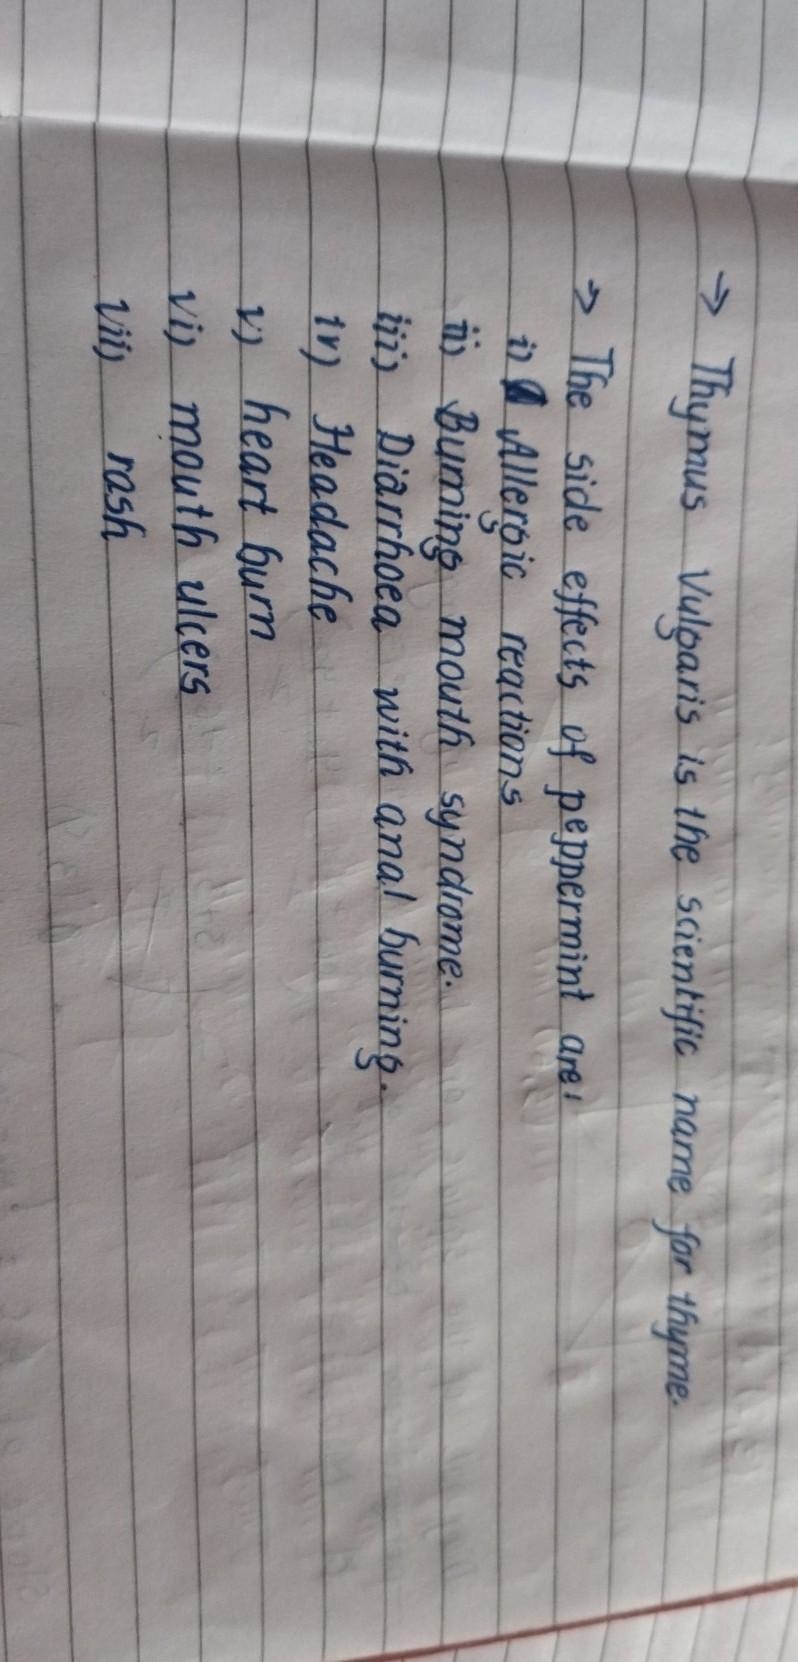 → Thymus Vulgaris is the scientific name for thyme.
→ The side effects of peppermint are:
i) Allergic reactions
ii) Burning mouth syndrome.
iii) Diarrhoea with anal burning.
iv) Headache
v) heart burn
vi) mouth ulcers
vii) rash